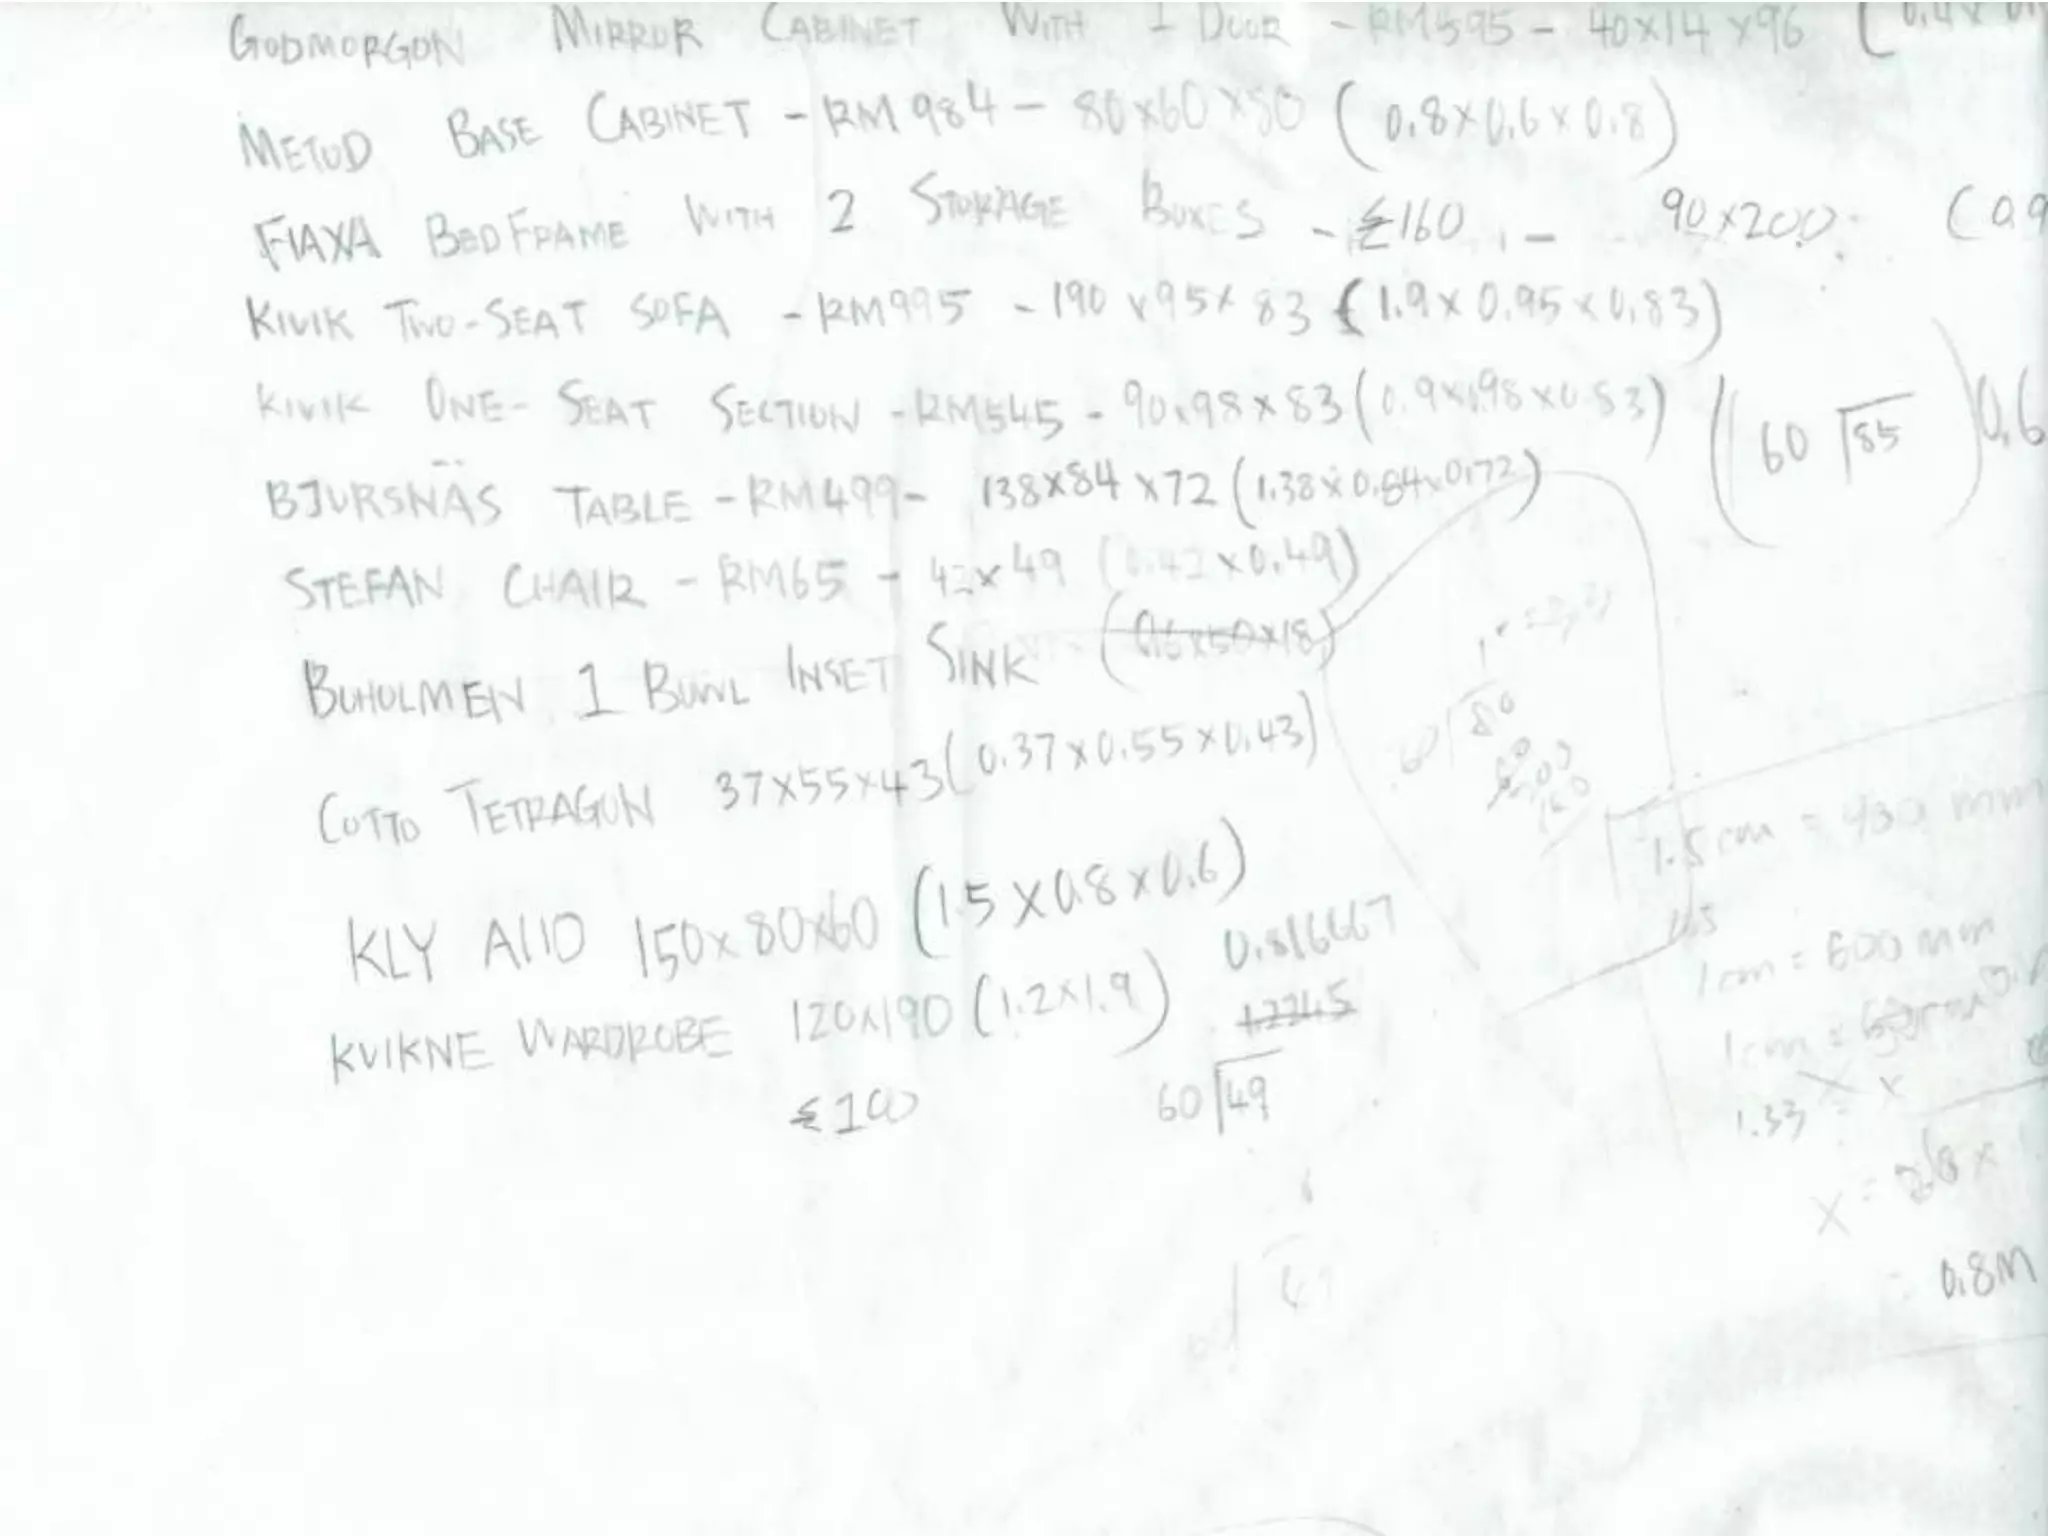 GODMORGON MIRROR CABINET WITH 1 DOOR - RM595 - 40x14x96 (0.4x
METOD BASE CABINET - RM984 - 80x60x80 (0.8x0.6x0.8)
FLAXA BEDFRAME WITH 2 STORAGE BOXES - £160 - 90x200 (0.9
KIVIK TWO-SEAT SOFA - RM995 - 190x95x83 (1.9x0.95x0.83)
KIVIK ONE-SEAT SECTION - RM545 - 90x98x83 (0.9x0.98x0.83) (60 √85) 0.6
BJURSNÄS TABLE - RM499 - 138x84x72 (1.38x0.84x0.72)
STEFAN CHAIR - RM65 - 42x49 (0.42x0.49)
BUHOLMEN 1 BOWL INSET SINK
COTTO TETRAGON 37x55x43 (0.37x0.55x0.43)
60 80
1.5cm = 430 mm
KLY A110 150x80x60 (1.5x0.8x0.6)
0.816667
1cm = 600 mm
KVIKNE WARDROBE 120x190 (1.2x1.9)
12245
£100 60 √49
1.33 = x
x = 
0.8M